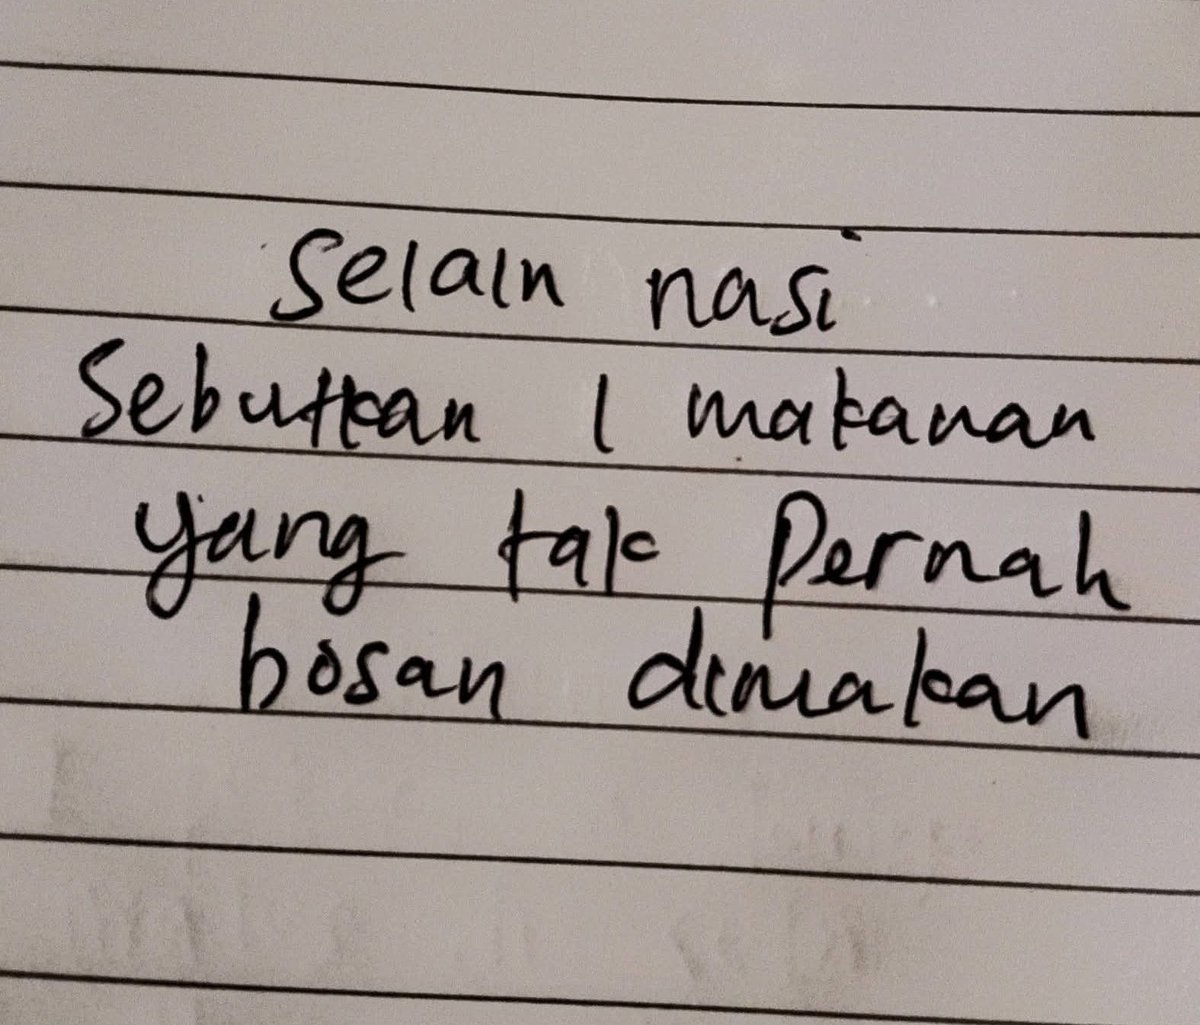 Selain nasi
Sebutkan 1 makanan
yang tak Pernah
bosan dimakan